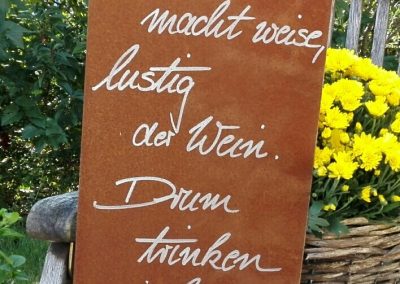 macht weise,
lustig
der Wein.
Drum
trinken